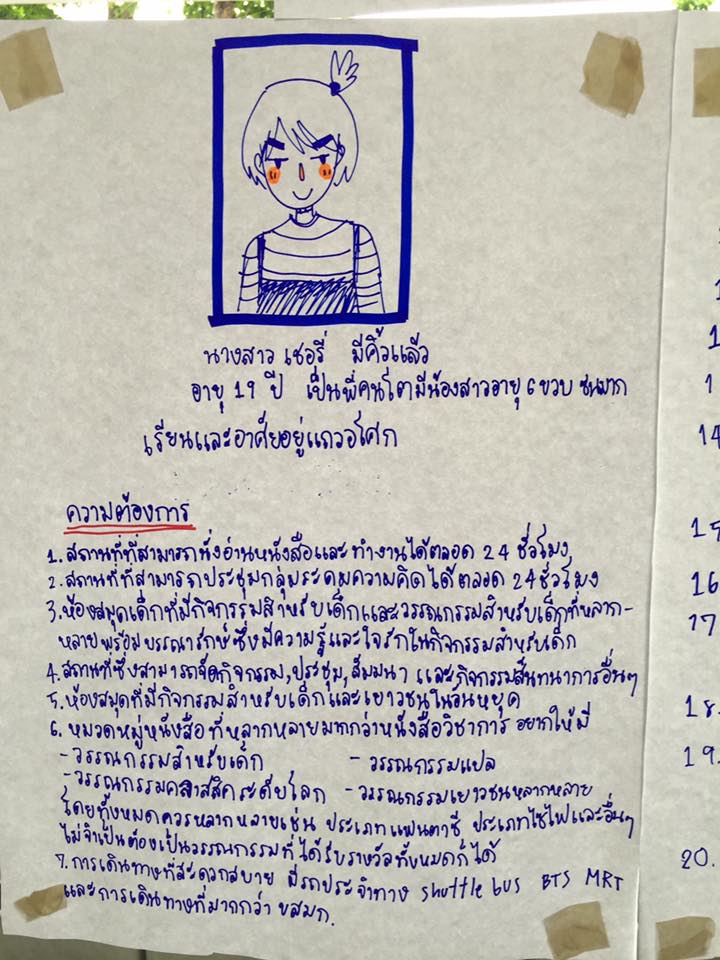 นางสาว เชอรี่ มีคิ้วแล้ว
อายุ 19 ปี เป็นพี่คนโตมีน้องสาวอายุ 6 ขวบ ซนมาก
เรียนและอาศัยอยู่แถวอโศก
ความต้องการ
1. สถานที่ที่สามารถนั่งอ่านหนังสือและทำงานได้ตลอด 24 ชั่วโมง
2. สถานที่ที่สามารถประชุมกลุ่มระดมความคิดได้ตลอด 24 ชั่วโมง
3. ห้องสมุดเด็กที่มีกิจกรรมสำหรับเด็กและวรรณกรรมสำหรับเด็กที่หลาก-
หลายพร้อมบรรณารักษ์ซึ่งมีความรู้และใจรักในกิจกรรมสำหรับเด็ก
4. สถานที่ซึ่งสามารถจัดกิจกรรม, ประชุม, สัมมนา และกิจกรรมสันทนาการอื่นๆ
5. ห้องสมุดที่มีกิจกรรมสำหรับเด็กและเยาวชนในวันหยุด
6. หมวดหมู่หนังสือที่หลากหลายมากกว่าหนังสือวิชาการ อยากให้มี
- วรรณกรรมสำหรับเด็ก - วรรณกรรมแปล
- วรรณกรรมคลาสสิคระดับโลก - วรรณกรรมเยาวชนหลากหลาย
โดยทั้งหมดควรหลากหลายเช่น ประเภทแฟนตาซี ประเภทไซไฟและอื่นๆ
ไม่จำเป็นต้องเป็นวรรณกรรมที่ได้รับรางวัลทั้งหมดก็ได้
7. การเดินทางที่สะดวกสบาย มีรถประจำทาง shuttle bus BTS MRT
และการเดินทางที่มากกว่า ขสมก.
14
15
16
17
18.
19.
20.